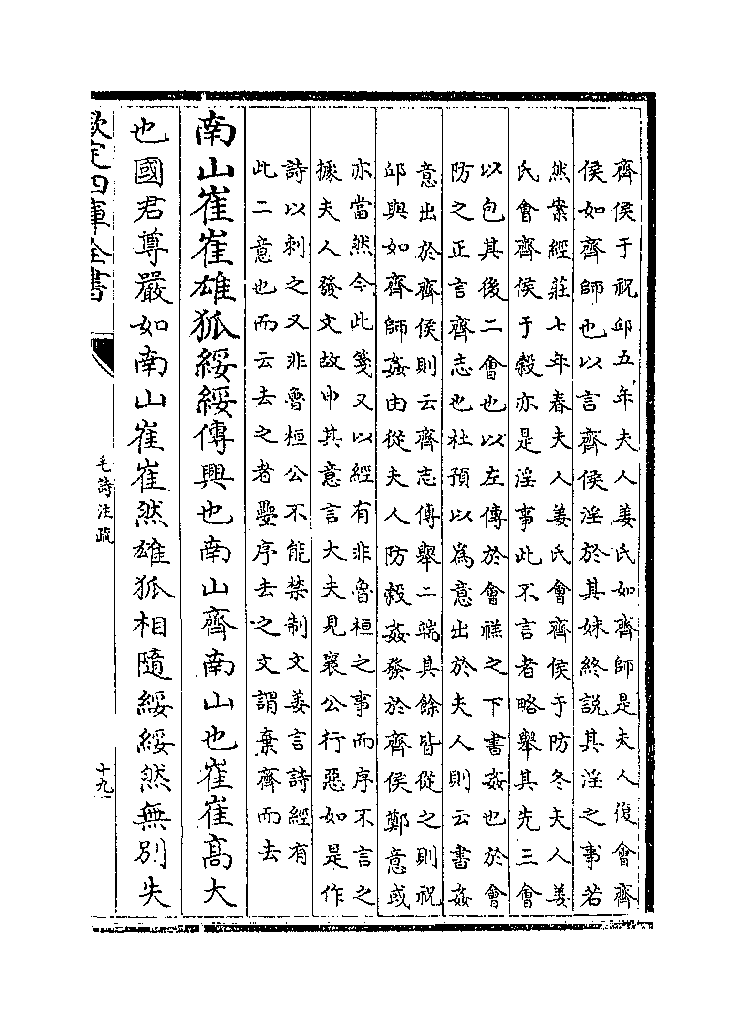 齊侯于祝邱五年夫人姜氏如齊師是夫人復會齊
侯如齊師也以言齊侯淫於其妹終說其淫之事若
然案經莊七年春夫人姜氏會齊侯于防冬夫人姜
氏會齊侯于穀亦是淫事此不言者略舉其先三會
以包其後二會也以左傳於會禚之下書姦也於會
防之正言齊志也杜預以為意出於夫人則云書姦
意出於齊侯則云齊志傳舉二端其餘皆從之則祝
邱與如齊師姦由從夫人防穀姦發於齊侯鄭意或
亦當然今此箋又以經有非魯桓之事而序不言之
據夫人發文故申其意言大夫見襄公行惡如是作
詩以刺之又非魯桓公不能禁制文姜言詩經有
此二意也而云去之者疊序去之文謂棄齊而去
南山崔崔雄狐綏綏傳興也南山齊南山也崔崔高大
也國君尊嚴如南山崔崔然雄狐相隨綏綏然無別失
欽定四庫全書
毛詩注疏
十九